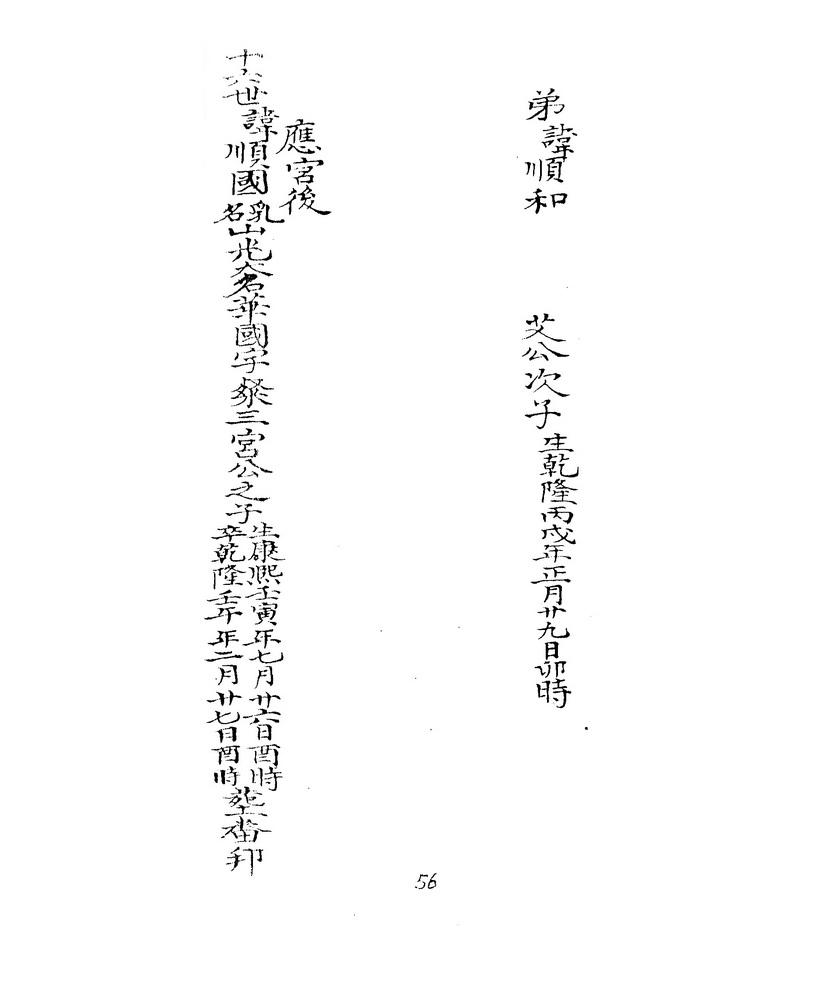 弟諱順和 艾公次子生乾隆丙戌年正月廿九日卯時
應宮後
十六世諱順國乳名山兆大名華國字燦三宮公之子生康熙壬寅年七月廿六日酉時
卒乾隆壬午年二月廿七日酉時
56